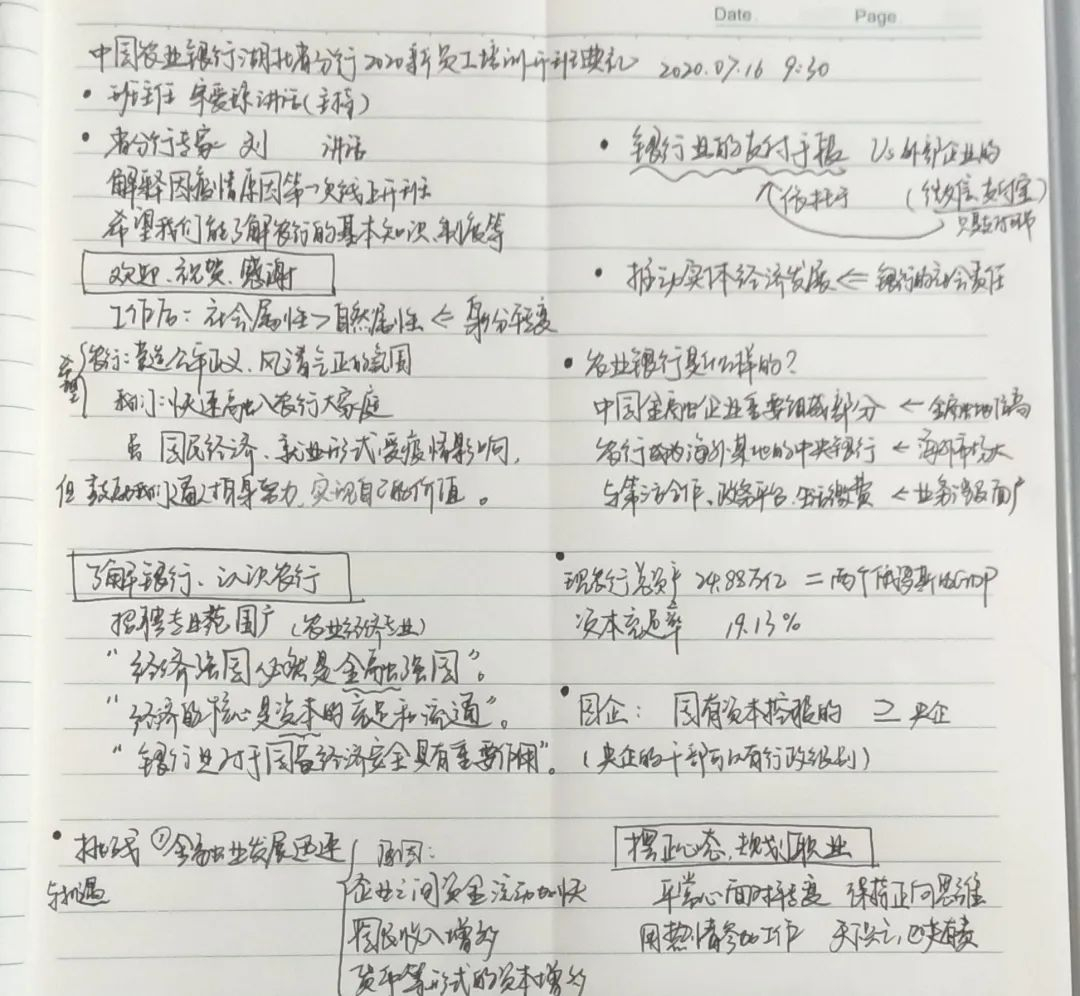 Date.
Page
中国农业银行湖北省分行2020新员工培训开班典礼 2020.07.16 9:30
• 班主任 讲话(主持)
• 省分行专家 刘 讲话
解释因疫情原因第一次线上开班
希望我们能了解农行的基本知识、制度等
欢迎、祝贺、感谢
工作后: 社会属性>自然属性 ← 身份转变
希望 农行:营造公平正义、风清气正的氛围
我们:快速融入农行大家庭
虽 国民经济、就业形式受疫情影响,
但 鼓励我们通过自身努力,实现自己的价值。
了解银行、认识农行
招聘专业范围广 (农业经济专业)
“经济强国必然是金融强国”。
“经济的核心是资本的充足和流通”。
“银行业对于国家经济安全具有重要作用”。
• 挑战与机遇 ①金融业发展迅速
原因:
企业之间资金流动加快
国民收入增多
货币等形式的资本增多
• 银行业的支付手段 Vs 外部企业的
依托于 (微信支付宝)
只是支付环节
• 推动实体经济发展 ⇐ 银行的社会责任
• 农业银行是什么样的?
中国金融企业重要组成部分 ← 全球地位高
农行成为海外某地的中央银行 ← 海外市场大
与第三方合作、政务平台、生活缴费 ← 业务涉及面广
• 现农行总资产 24.88万亿 = 两个俄罗斯的GDP
资本充足率 19.13%
• 国企: 国有资本控股的 ⊇ 央企
(央企的干部可以有行政级别)
摆正心态,规划职业
平常心面对转变 保持正向思维
用热情参加工作